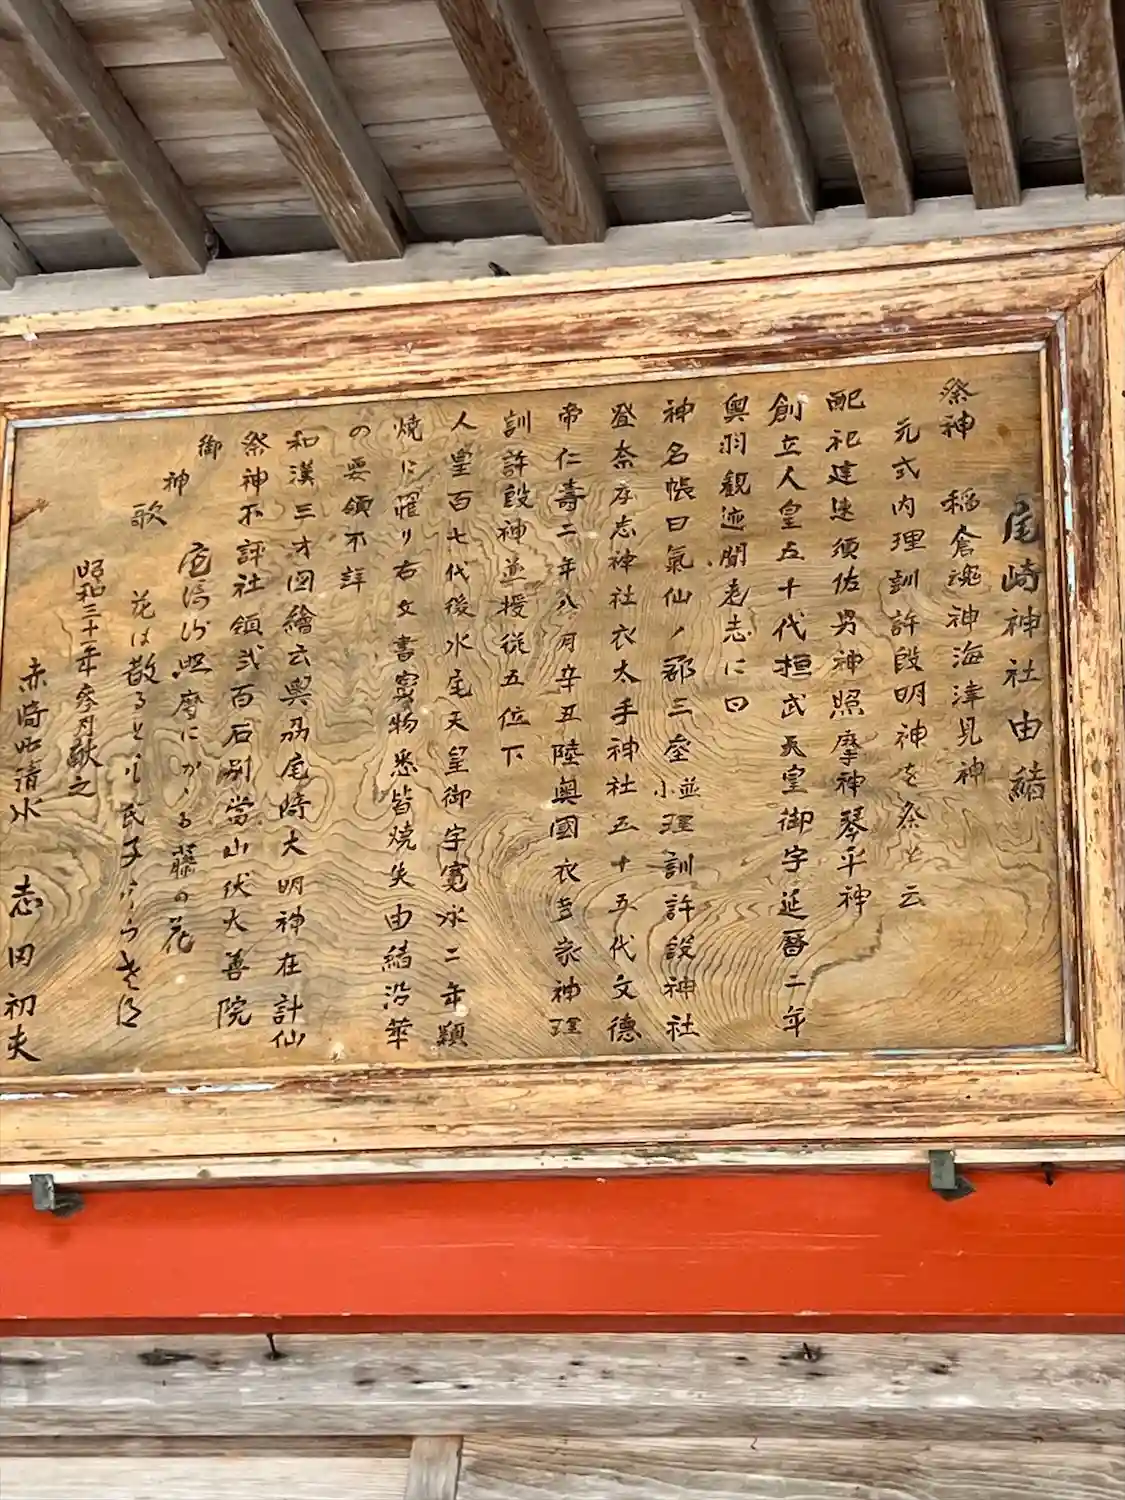 尾崎神社由緒
祭神 稲倉魂神海津見神
元式内理訓許段明神を祭と云
配祀建速須佐男神照摩神琴平神
創立人皇五十代桓武天皇御宇延暦二年
奥羽観迹聞老志に曰
神名帳曰氣仙ノ郡三座並小理訓許段神社
登奈孝志神社衣太手神社五十五代文徳
帝仁壽二年八月辛丑陸奥國衣多家神理
訓許段神並授従五位下
人皇百七代後水尾天皇御宇寛永二年類
焼に罹リ右文書寶物悉皆焼失由緒沿革
の要領不詳
和漢三才図繪云奥刕尾崎大明神在計仙
祭神不詳社領弐百石別當山伏大善院
御神歌
尾崎 照磨にかゝる藤の花
花は散るとも氏子
昭和三十二年参月献之
赤崎町清水 志田初夫